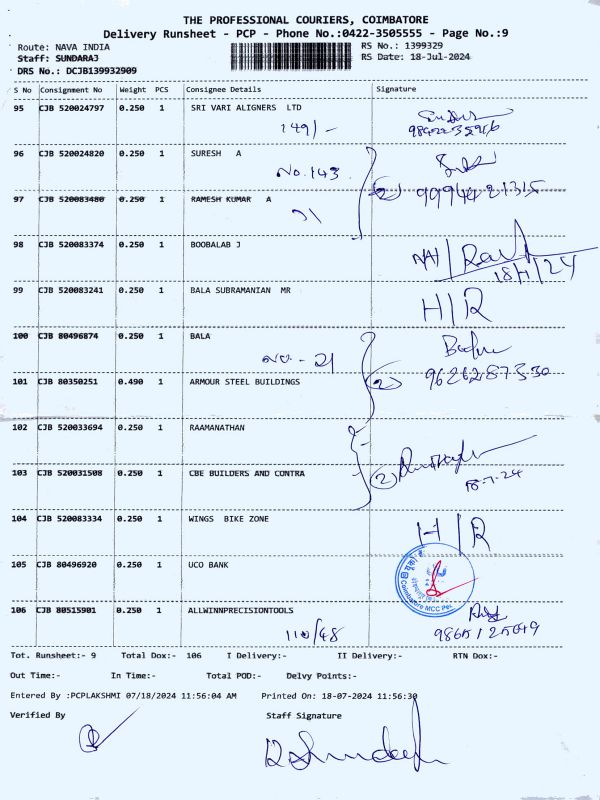 THE PROFESSIONAL COURIERS, COIMBATORE
Delivery Runsheet - PCP - Phone No.:0422-3505555 - Page No.:9
Route: NAVA INDIA RS No.: 1399329
Staff: SUNDARAJ RS Date: 18-Jul-2024
DRS No.: DCJB139932909
S No Consignment No Weight PCS Consignee Details Signature
95 CJB 520024797 0.250 1 SRI VARI ALIGNERS LTD
149/-
96 CJB 520024820 0.250 1 SURESH A
No. 143
97 CJB 520083480 0.250 1 RAMESH KUMAR A
(2) 9994421315
98 CJB 520083374 0.250 1 BOOBALAB J
18/7/24
99 CJB 520083241 0.250 1 BALA SUBRAMANIAN MR
H/R
100 CJB 80496874 0.250 1 BALA
NO - 21
(2) 9626287330
101 CJB 80350251 0.490 1 ARMOUR STEEL BUILDINGS
102 CJB 520033694 0.250 1 RAAMANATHAN
103 CJB 520031508 0.250 1 CBE BUILDERS AND CONTRA
(2) 18-7-24
104 CJB 520083334 0.250 1 WINGS BIKE ZONE
H/R
105 CJB 80496920 0.250 1 UCO BANK
Coimbatore MCC
106 CJB 80515901 0.250 1 ALLWINNPRECISIONTOOLS
110/48
Tot. Runsheet:- 9 Total Dox:- 106 I Delivery:- II Delivery:- RTN Dox:-
Out Time:- In Time:- Total POD:- Delvy Points:-
Entered By :PCPLAKSHMI 07/18/2024 11:56:04 AM Printed On: 18-07-2024 11:56:30
Verified By Staff Signature